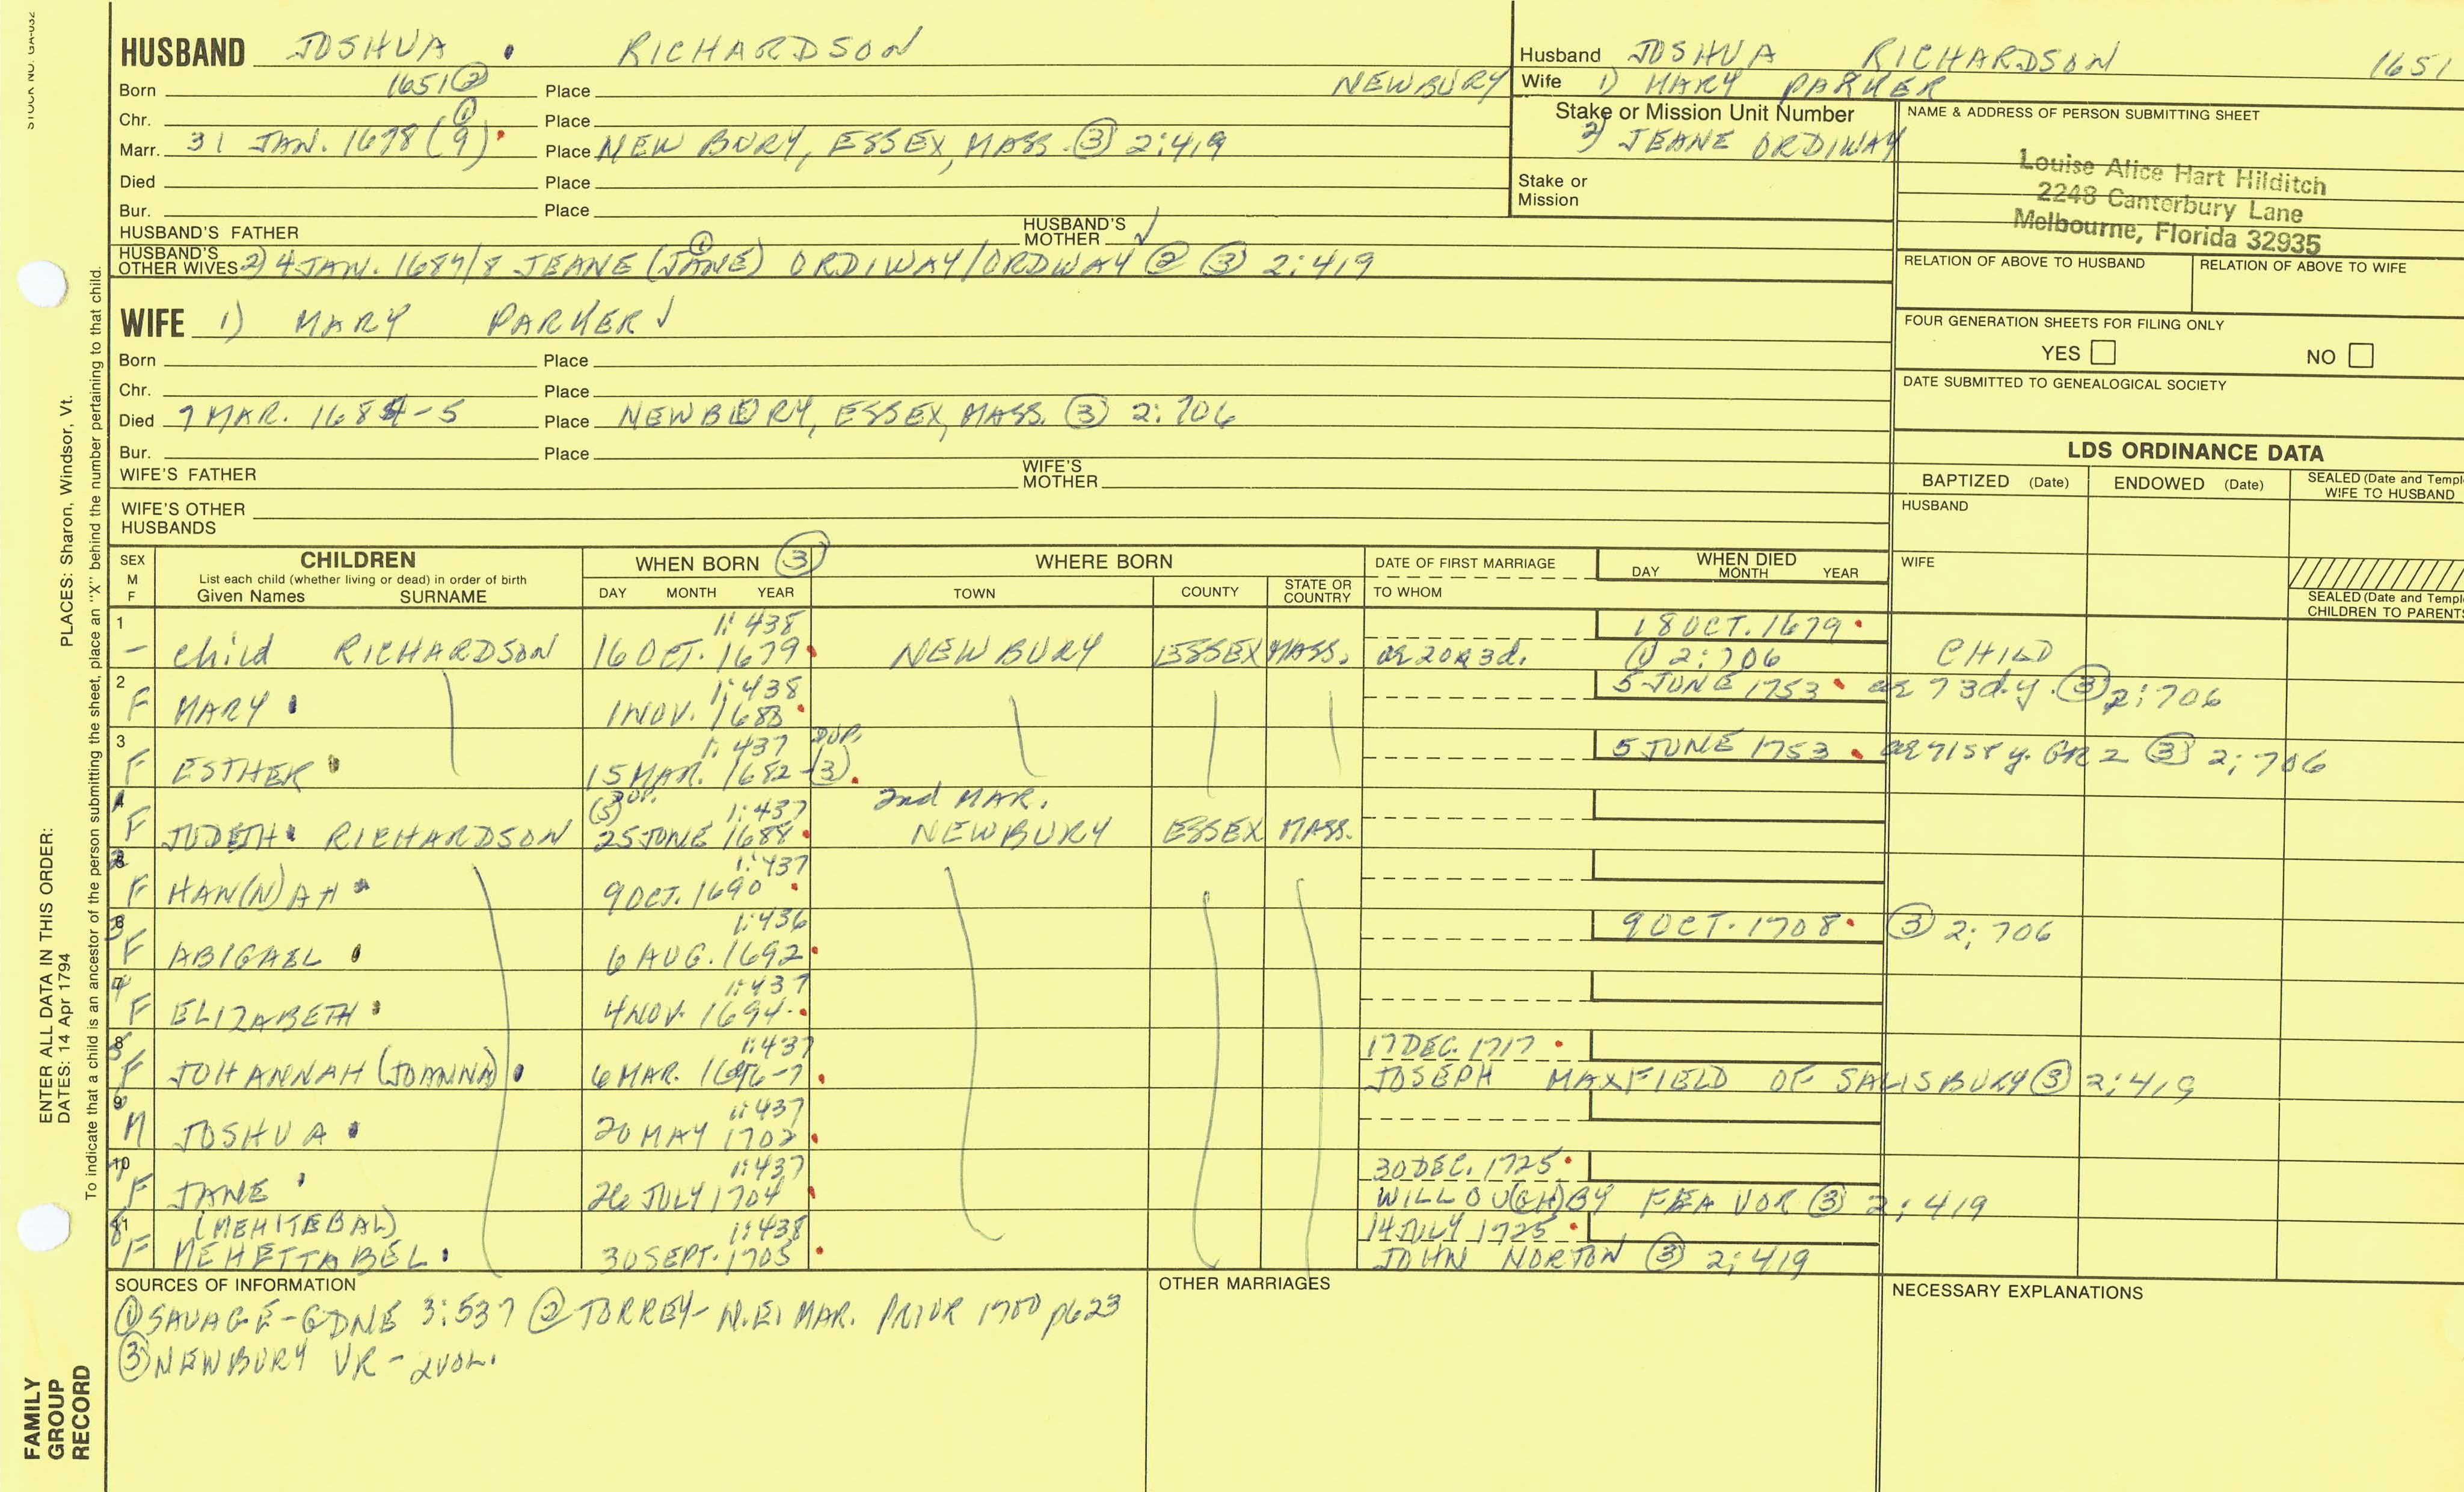 STOCK NO. GA-032
HUSBAND JOSHUA RICHARDSON
Born 1651 ② Place NEWBURY
Chr. Place
Marr. 31 JAN. 1678(9) ① Place NEW BURY, ESSEX, MASS. ③ 2:419
Died Place
Bur. Place
HUSBAND'S FATHER HUSBAND'S MOTHER ✓
HUSBAND'S OTHER WIVES 2) 4 JAN. 1687/8 JEANE (JANE) ① ORDIWAY/ORDWAY ② ③ 2:419
WIFE 1) MARY PARKER ✓
Born Place
Chr. Place
Died 7 MAR. 1684-5 Place NEWBURY, ESSEX, MASS. ③ 2:706
Bur. Place
WIFE'S FATHER WIFE'S MOTHER
WIFE'S OTHER HUSBANDS
Husband JOSHUA RICHARDSON 1651
Wife 1) MARY PARKER
Stake or Mission Unit Number
2) JEANE ORDIWAY
Stake or Mission
NAME & ADDRESS OF PERSON SUBMITTING SHEET
Louise Alice Hart Hilditch
2248 Canterbury Lane
Melbourne, Florida 32935
RELATION OF ABOVE TO HUSBAND RELATION OF ABOVE TO WIFE
FOUR GENERATION SHEETS FOR FILING ONLY
YES NO
DATE SUBMITTED TO GENEALOGICAL SOCIETY
LDS ORDINANCE DATA
BAPTIZED (Date) ENDOWED (Date) SEALED (Date and Templ
WIFE TO HUSBAND
HUSBAND
WIFE
SEALED (Date and Templ
CHILDREN TO PARENTS
SEX M F CHILDREN WHEN BORN ③ WHERE BORN DATE OF FIRST MARRIAGE WHEN DIED
List each child (whether living or dead) in order of birth DAY MONTH YEAR
Given Names SURNAME DAY MONTH YEAR TOWN COUNTY STATE OR COUNTRY TO WHOM
1 1:438 18 OCT. 1679
- child RICHARDSON 16 OCT. 1679 NEWBURY ESSEX MASS. ae 2 or 3 d. ① 2:706 CHILD
2 1:438 5 JUNE 1753 ae 73d.y. ③ 2:706
F MARY 1 NOV.
3 1:437 DUP. 5 JUNE 1753 ae 71st y. GR 2 ③ 2:706
F ESTHER 15 MAR. 1682-(3)
DUP. 1:437 2nd MAR.
F JUDETH RICHARDSON 25 JUNE 1688 NEWBURY ESSEX MASS.
1:437
F HAN(N)AH 9 OCT. 1690
1:436 9 OCT. 1708 ③ 2:706
F ABIGAEL 6 AUG. 1692
1:437
F ELIZABETH 4 NOV. 1694
1:437 17 DEC. 1717
F JOHANNAH (JOANNA) 6 MAR. 1696-7 JOSEPH MAXFIELD OF SALISBURY ③ 2:419
1:437
M JOSHUA 20 MAY 1702
10 1:437 30 DEC. 1725
F JANE 26 JULY 1704 WILLOU(GH)BY FEAVOR ③ 2:419
(MEHITEBAL) 1:438 14 JULY 1725
F MEHETTABEL 30 SEPT. 1705 JOHN NORTON ③ 2:419
SOURCES OF INFORMATION OTHER MARRIAGES NECESSARY EXPLANATIONS
① SAVAGE-GDNE 3:537 ② TORREY-N.E. MAR. PRIOR 1700 p623
③ NEWBURY VR-2VOL.
ENTER ALL DATA IN THIS ORDER: PLACES: Sharon, Windsor, Vt.
DATES: 14 Apr 1794
To indicate that a child is an ancestor of the person submitting the sheet, place an "X" behind the number pertaining to that child.
FAMILY
GROUP
RECORD